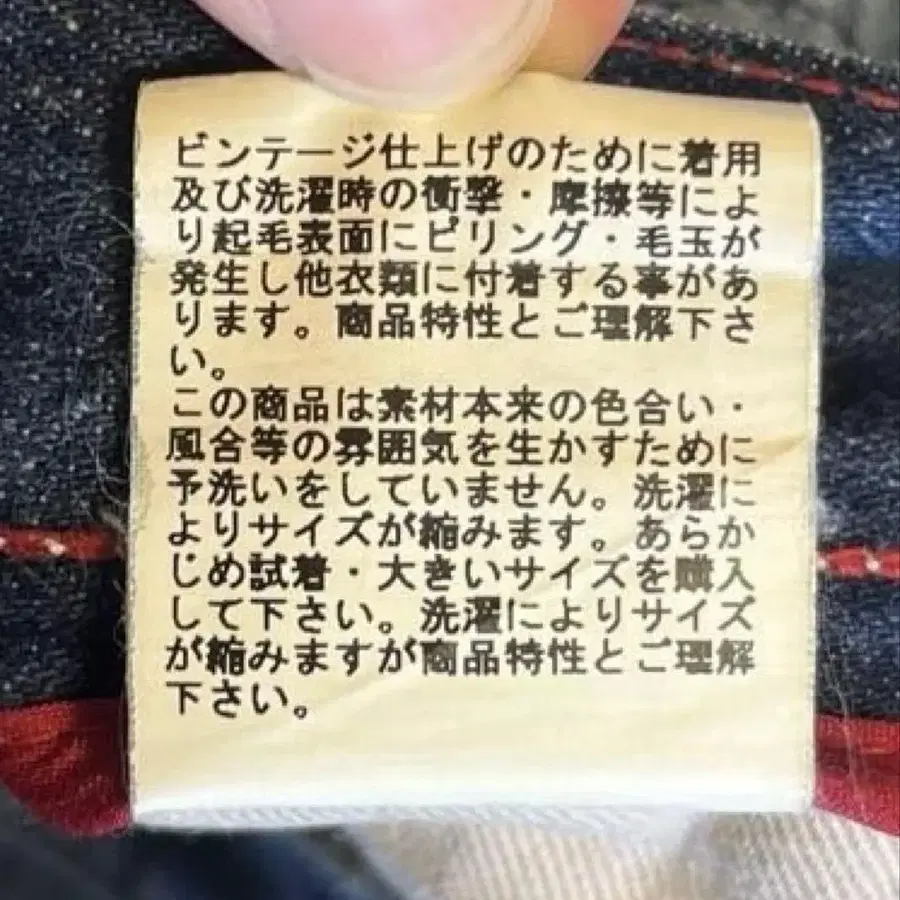 ビンテージ仕上げのために着用
及び洗濯時の衝撃・摩擦等によ
り起毛表面にピリング・毛玉が
発生し他衣類に付着する事があ
ります。商品特性とご理解下さ
い。
この商品は素材本来の色合い・
風合等の雰囲気を生かすために
予洗いをしていません。洗濯に
よりサイズが縮みます。あらか
じめ試着・大きいサイズを購入
して下さい。洗濯によりサイズ
が縮みますが商品特性とご理解
下さい。